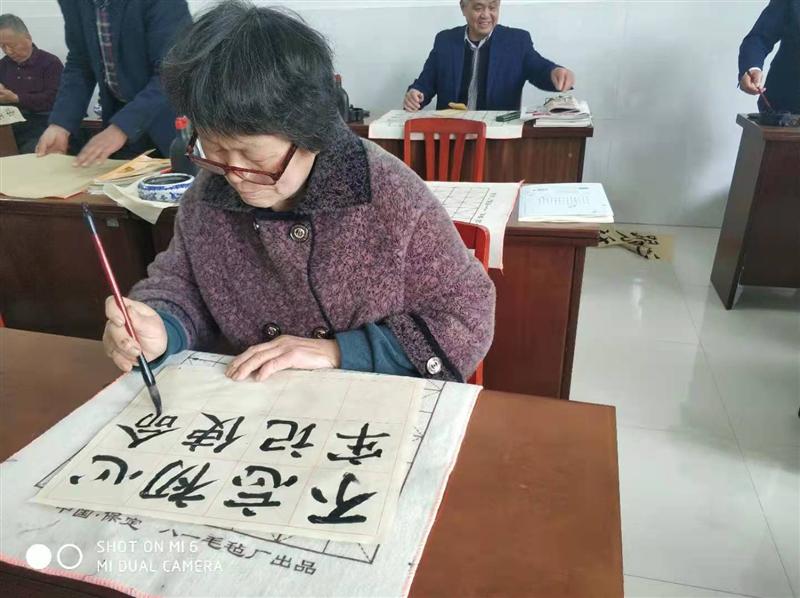 不忘初心
牢记使命
中国·保定 八一毛毡厂出品
SHOT ON MI 6
MI DUAL CAMERA